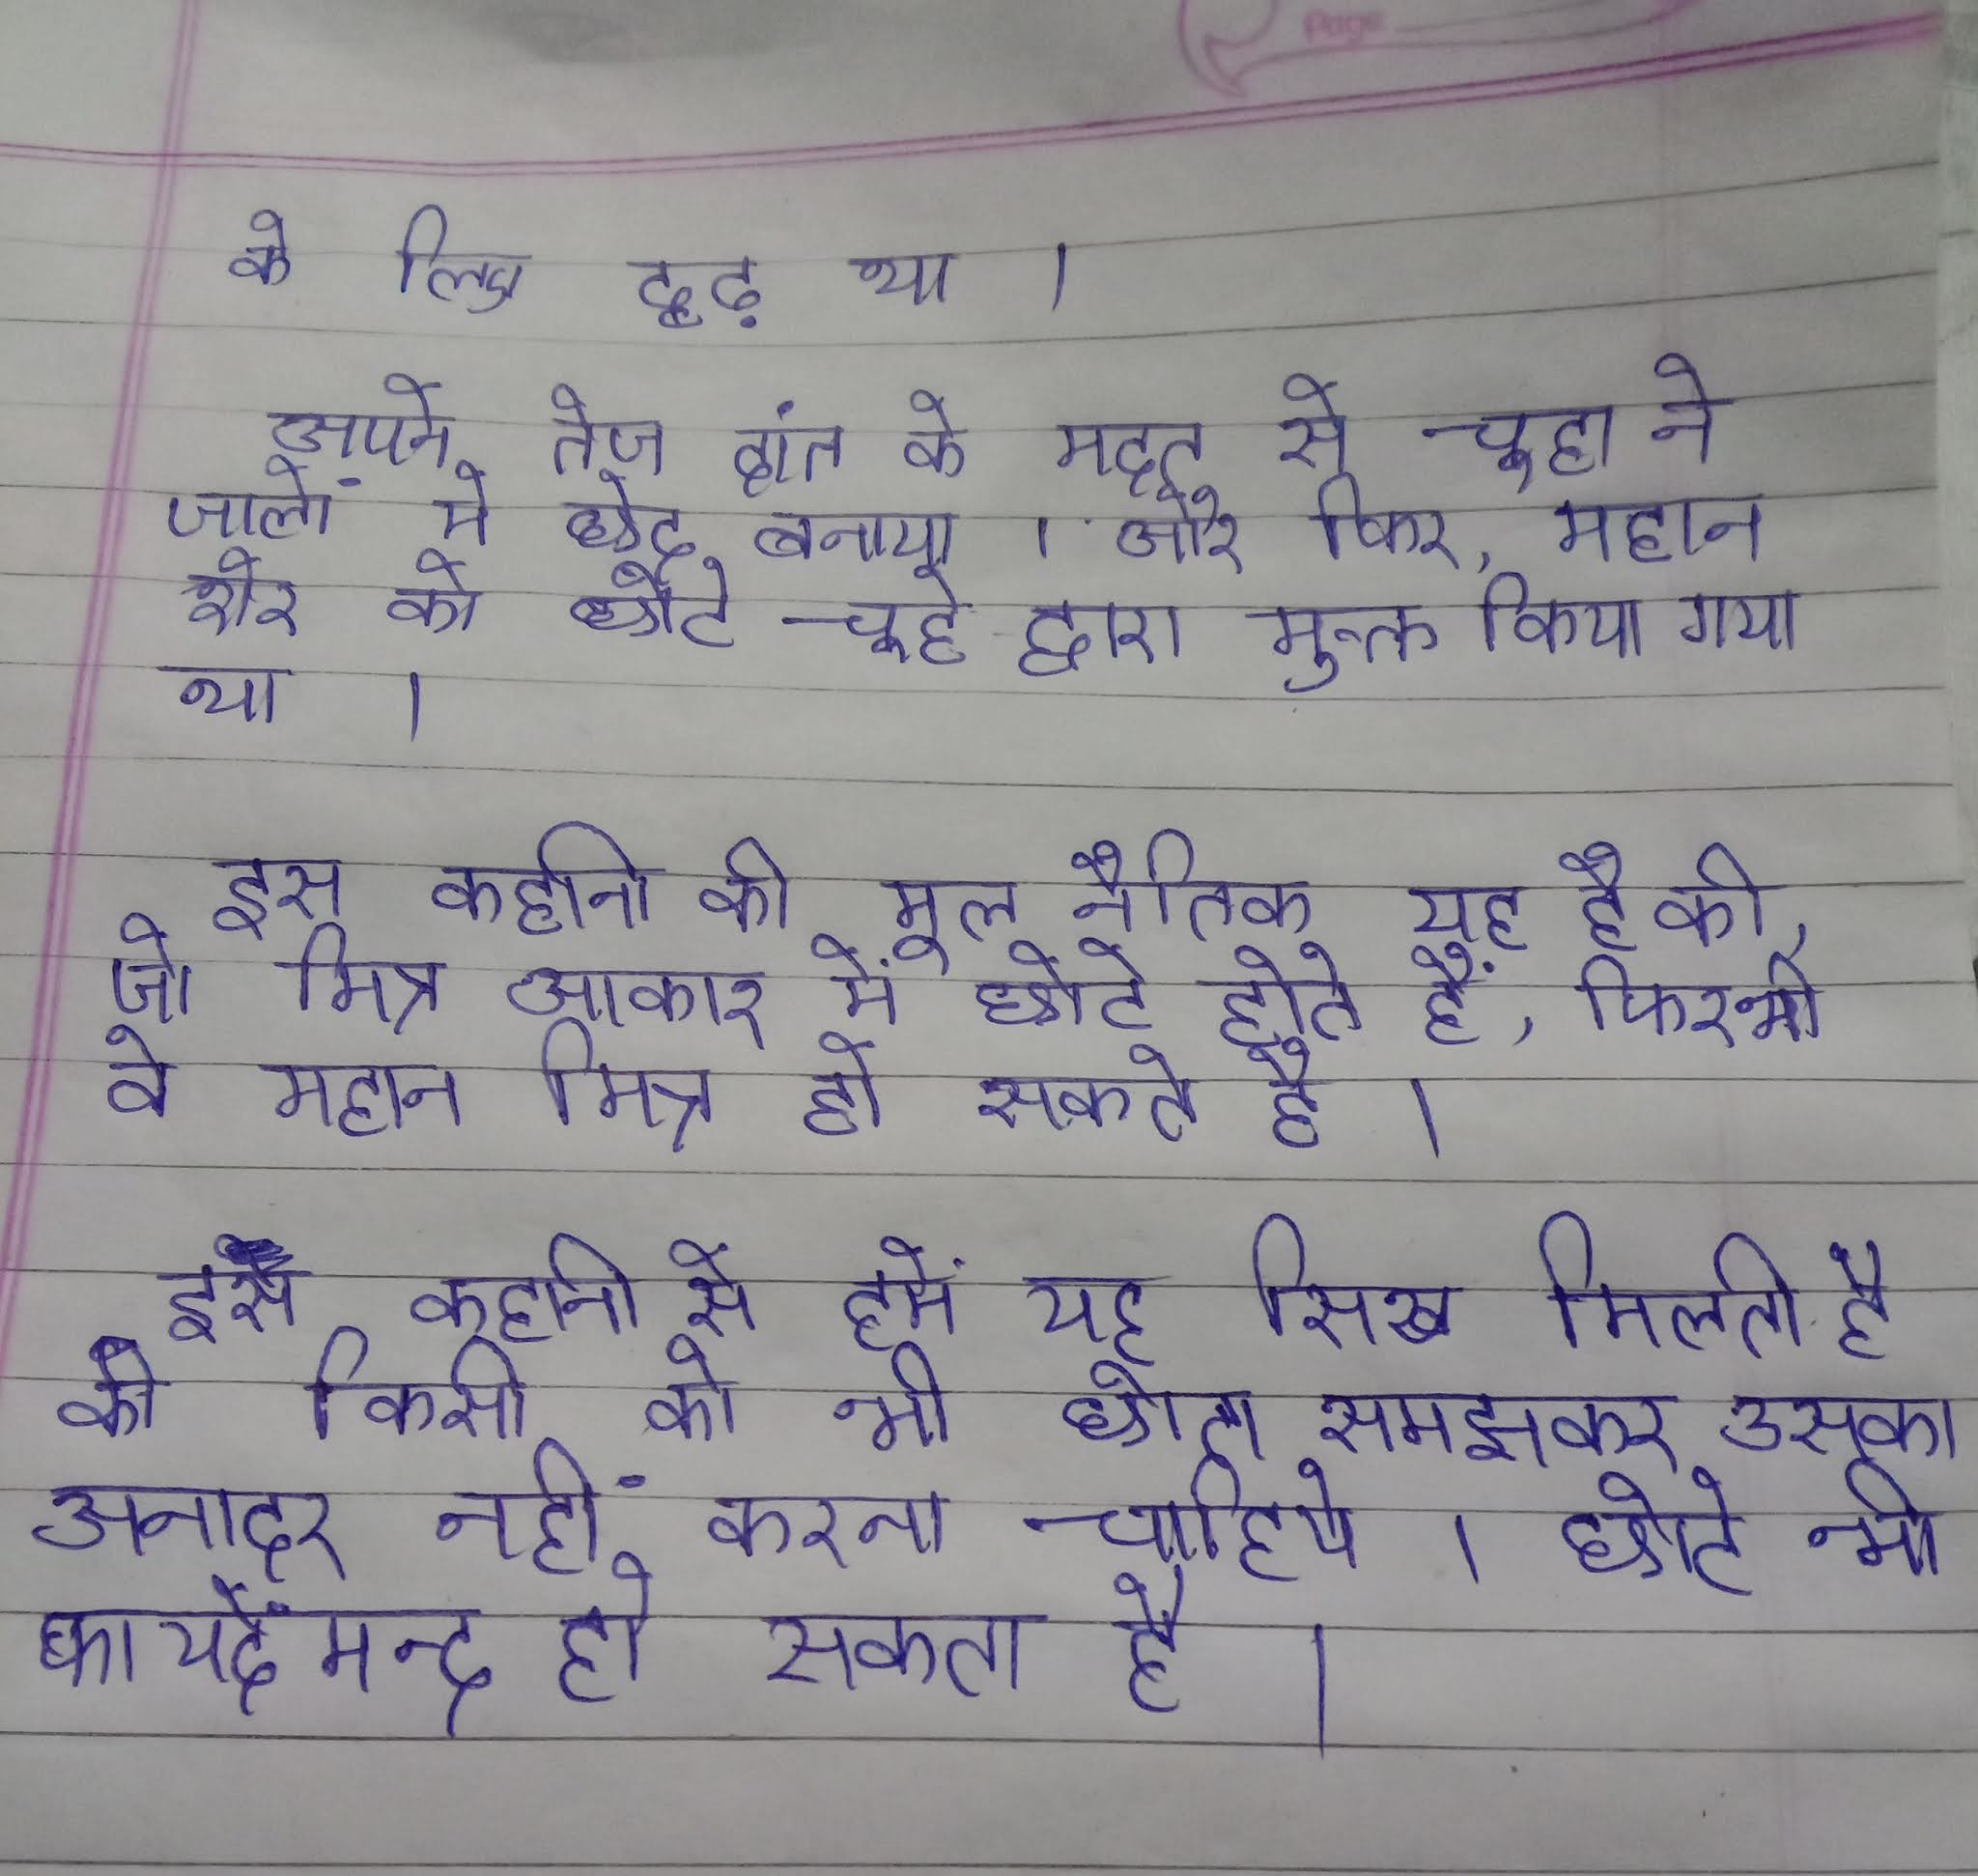 Page
के लिए दृढ़ था ।
अपने तेज दांत के मद्दत से चूहा ने
जालों मे छेद बनाया । और फिर, महान
शेर को छोटे चूहे द्वारा मुक्त किया गया
था ।
इस कहानी की मूल नैतिक यह है की,
जो मित्र आकार में छोटे होते हैं, फिरभी
वे महान मित्र हो सकते है ।
इस कहानी से हमें यह सिख मिलती है
की किसी को भी छोटा समझकर उसका
अनादर नहीं करना चाहिये । छोटे भी
फायदेंमन्द हो सकता है ।